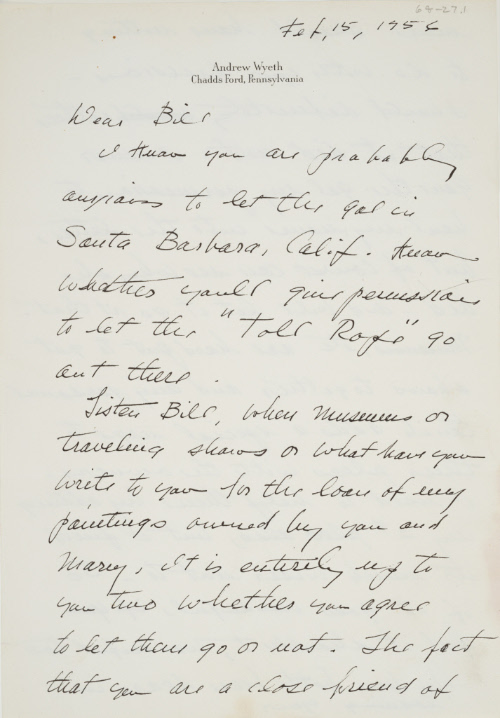 68-27.1
Feb, 15, 1956
Andrew Wyeth
Chadds Ford, Pennsylvania
Dear Bill
I know you are probably
anxious to let the gal in
Santa Barbara, Calif. know
whether you'll give permission
to let the "Toll Rope" go
out there.
Listen Bill, when museums or
traveling shows or what have you
write to you for the loan of my
paintings owned by you and
Mary, it is entirely up to
you two whether you agree
to let them go or not. The fact
that you are a close friend of